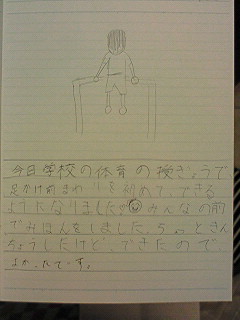 今日学校の体育の授ぎょうで
足かけ前まわりを初めて、できる
ようになりました。みんなの前
でみほんをしました。ちょっときん
ちょうしたけど、できたので、
よかったです。